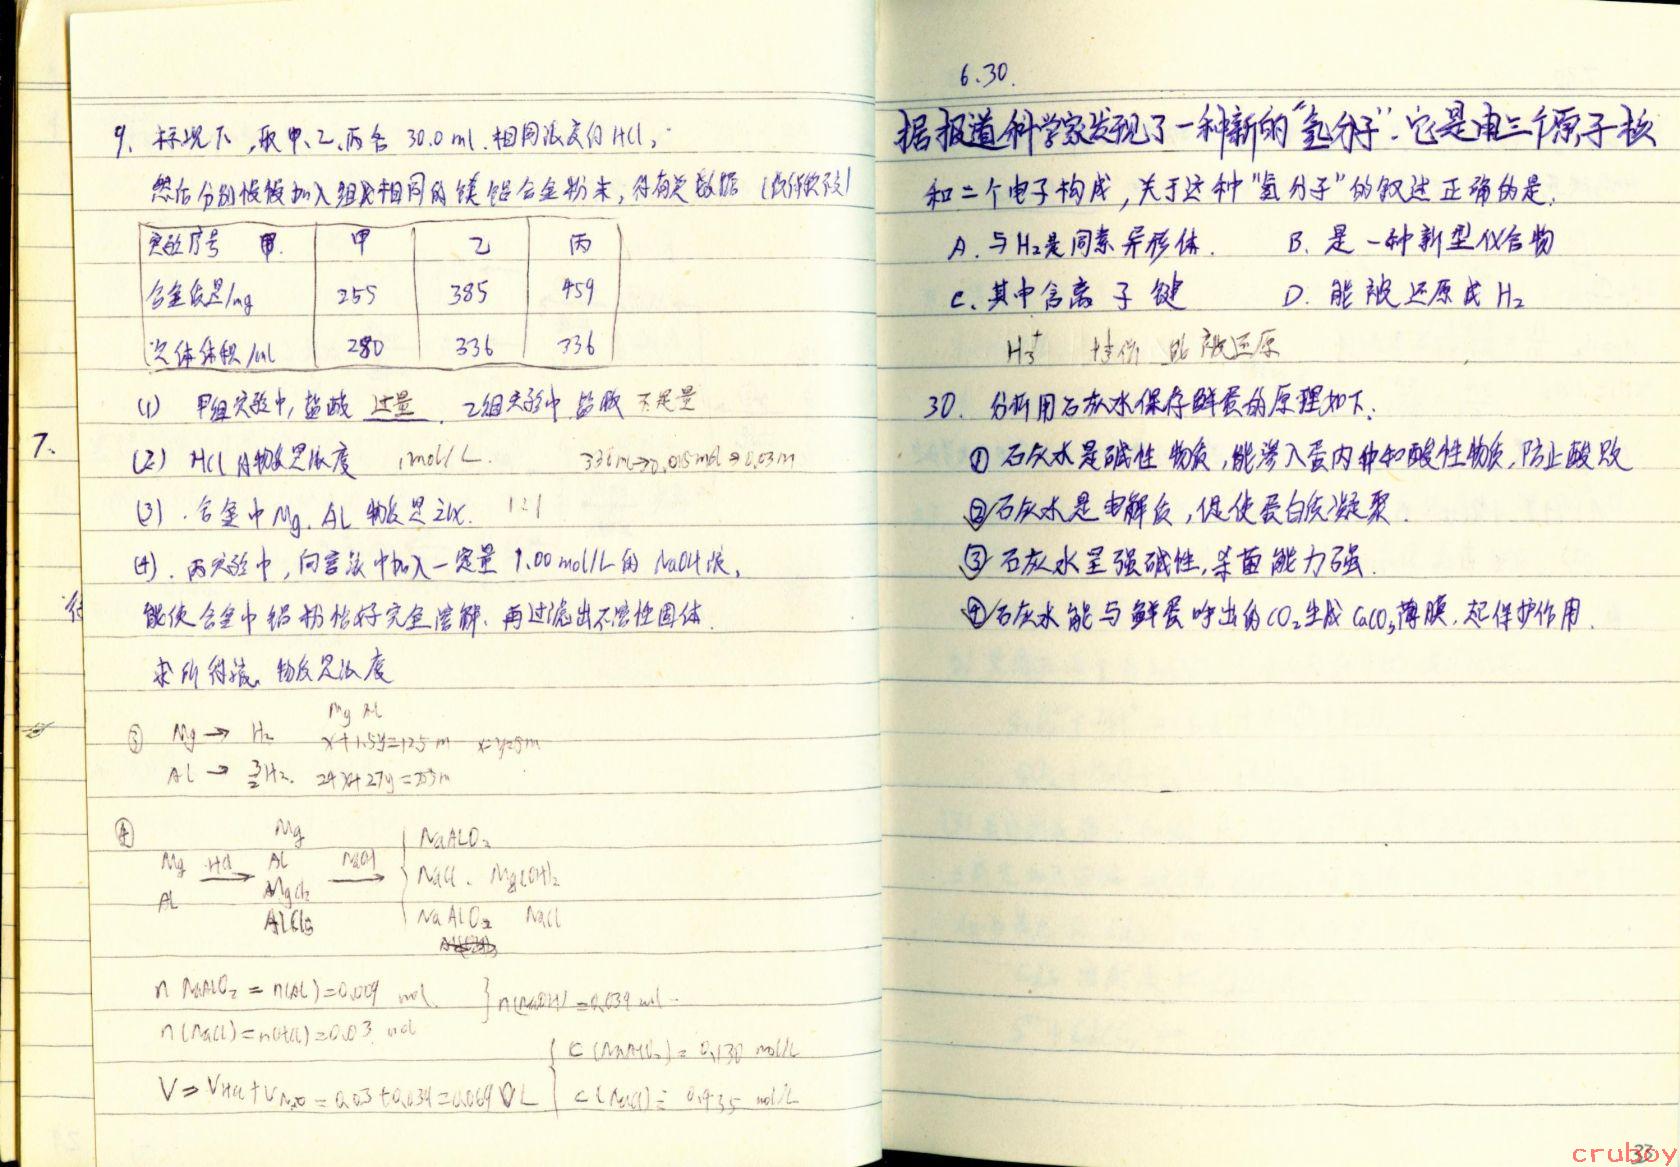 9. 标况下,取甲、乙、丙各 30.0 ml.相同浓度的HCl,
然后分别慢慢加入组成相同的镁铝合金粉末,得有关数据
实验序号 甲 乙 丙
合金质量/mg 255 385 459
气体体积/ml 280 336 336
(1) 甲组实验中,盐酸 过量. 乙组实验中盐酸 不足量
(2) HCl 的物质量浓度 1mol/L. 336ml→0.015mol→0.03m
(3). 合金中Mg、Al 物质量之比. 1:1
(4). 丙实验中,向容液中加入一定量 1.00 mol/L的 NaOH液,
能使合金中铝粉恰好完全溶解.再过滤出不溶性固体.
求所得液.物质量浓度
③ Mg → H₂
Mg Al
x+1.5y=12.5m x=y=5m
Al → 3/2 H₂. 24x+27y=255m
④
Mg Al →HCl Mg Al MgCl₂ AlCl₃ →NaOH { NaAlO₂
NaCl. Mg(OH)₂
NaAlO₂ NaCl
n NaAlO₂ = n(Al)=0.009 mol.
n(NaCl)=n(HCl)=0.03 mol
} n(NaOH)=0.039 mol
V = VHCl+VNaO = 0.03+0.039=0.069 L
{ C(NaAlO₂)= 0.130 mol/L
C(NaCl)= 0.435 mol/L
7.
6.30.
据报道科学家发现了一种新的"氢分子".它是由三个原子核
和二个电子构成,关于这种"氢分子"的叙述正确的是.
A.与H₂是同素异形体. B. 是一种新型化合物
C.其中含离子键 D. 能被还原成H₂
H₃⁺ 能被还原
30. 分析用石灰水保存鲜蛋的原理如下:
①石灰水是碱性物质,能渗入蛋内中和酸性物质,防止酸败
②石灰水是电解质,促使蛋白质凝聚.
③石灰水呈强碱性,杀菌能力强.
④石灰水能与鲜蛋呼出的CO₂生成CaCO₃薄膜.起保护作用.
33
cruboy